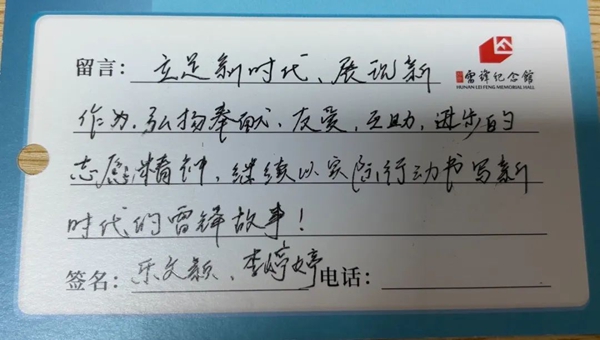 雷锋纪念馆
HUNAN LEI FENG MEMORIAL HALL
留言：立足新时代、展现新
作为，弘扬奉献、友爱、互助、进步的
志愿精神，继续以实际行动书写新
时代的雷锋故事！
签名：乐文颖、李婷婷 电话：